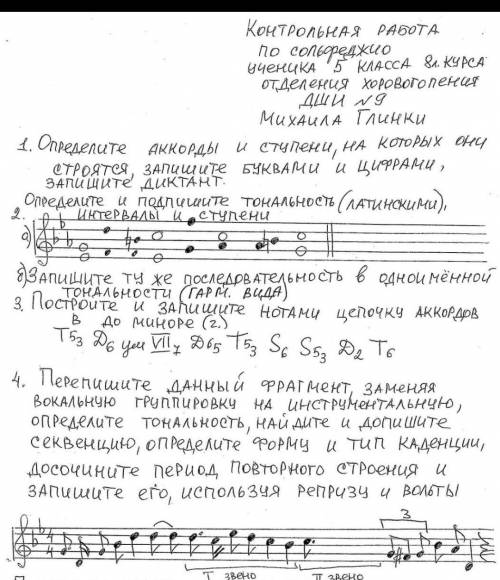 Контрольная работа
по сольфеджио
ученика 5 класса 8л. курса
отделения хорового пения
ДШИ №9
Михаила Глинки
1. Определите аккорды и ступени, на которых они
строятся, запишите буквами и цифрами,
запишите диктант.
Определите и подпишите тональность (латинскими),
2. интервалы и ступени
а)
б) Запишите ту же последовательность в одноимённой
тональности (гарм. вида)
3. Постройте и запишите нотами цепочку аккордов
в до миноре (г.)
T53 D6 ум VII7 D65 T53 S6 S53 D2 T6
4. Перепишите данный фрагмент, заменяя
вокальную группировку на инструментальную,
определите тональность, найдите и допишите
секвенцию, определите форму и тип каденции,
досочините период повторного строения и
запишите его, используя репризу и вольты
3
4 4
I звено II звено